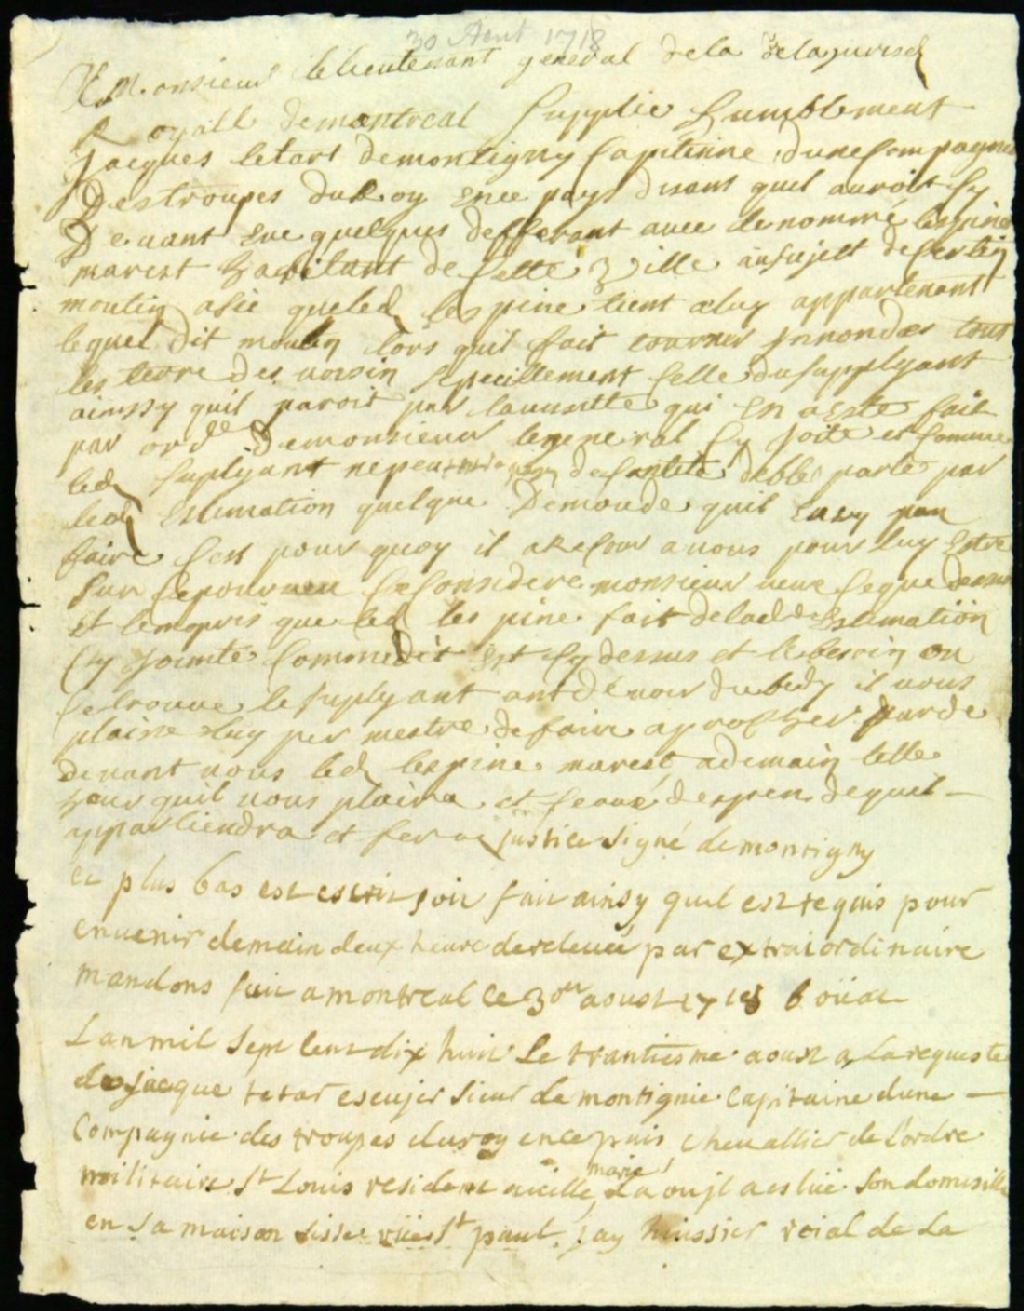 30 Aout 1718
A Monsieur le lieutenant general de la de la jurisd
Royalle de montreal Supplie humblement
Jacques tetart demontigny Capitienne dune Compagnie
Des troupes du Roy ence pays disant quil auroit cy
Devant eue quelques defferant avec le nommé lespine
marest habitant de cette ville au sujett de certin
moulin a sie queled lespine tient a luy appartenant
lequel dit moulin lors quil fait tourner jnnondes tous
les terre des voisin specillement celle du supplyant
ainssy quil paroit par la visitte qui en a este fait
par orde Demonsieur legeneral cy joite et comme
led Suplyant nepeu de cantité debles parte par
lad Estimation quelque Demande quil luy
faire Cest pour quoy il a recour a vous pour luy estre
sur ce pourveu ce considere monsieur veue ceque dessus
et lemepris que led les pine fait de lad Estimation
Cy jointe Comme dit est cy dessus et le besoin ou
ce trouve le suplyant du bledz il vous
plaise luy per mestre de faire aprocher parde
devant vous led lespine marest a demain telle
heur quil vous plaira et de quel
appartiendra et feraz justice signé de montigny
et plus bas est escrit soit fait ainsy quil est requis pour
en venir demain deux heure de relevé par extraiordinaire
mandons fait a montreal ce 30me aoust 1718 boüat
Lan mil sept cent dix huit Le trantiesme aoust a la requeste
de jacque tetar escuyer sieur de montignie Capitaine dune
Compagnie des troupes du roy ence païs chevallier de Lordre
militaire St Louis resident aville marie La ou jl a eslüe son domisille
en sa maison sisse rüe St paul, jay huissier roial de La